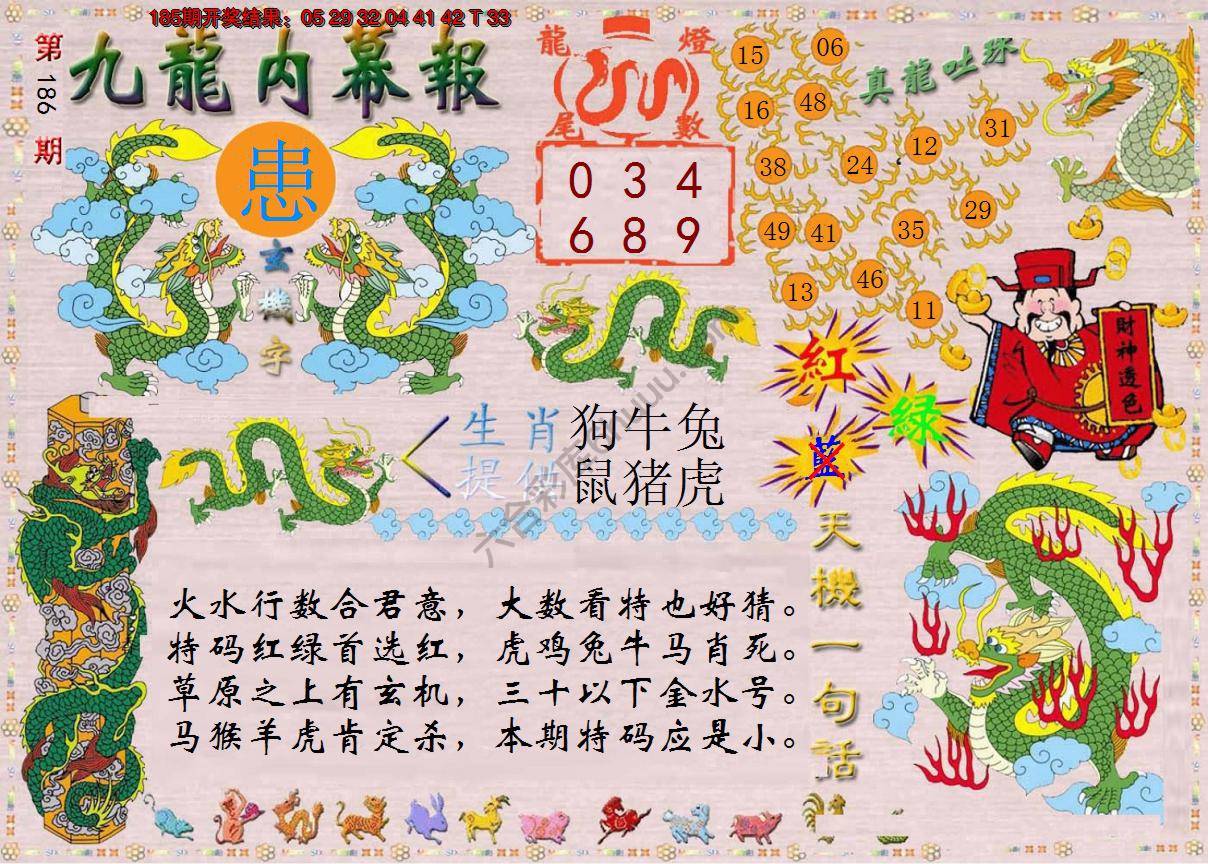 185期开奖结果：05 29 32 04 41 42 T 33
第186期
九龍内幕報
患
玄機字
龍燈
尾數
0 3 4
6 8 9
真龍吐珠
15 06
16 48
38 24 12 31
49 41 35 29
13 46 11
財神透色
紅
綠
藍
生肖
提供
狗牛兔
鼠猪虎
六合彩库
天機一句話
火水行数合君意，大数看特也好猜。
特码红绿首选红，虎鸡兔牛马肖死。
草原之上有玄机，三十以下金水号。
马猴羊虎肯定杀，本期特码应是小。